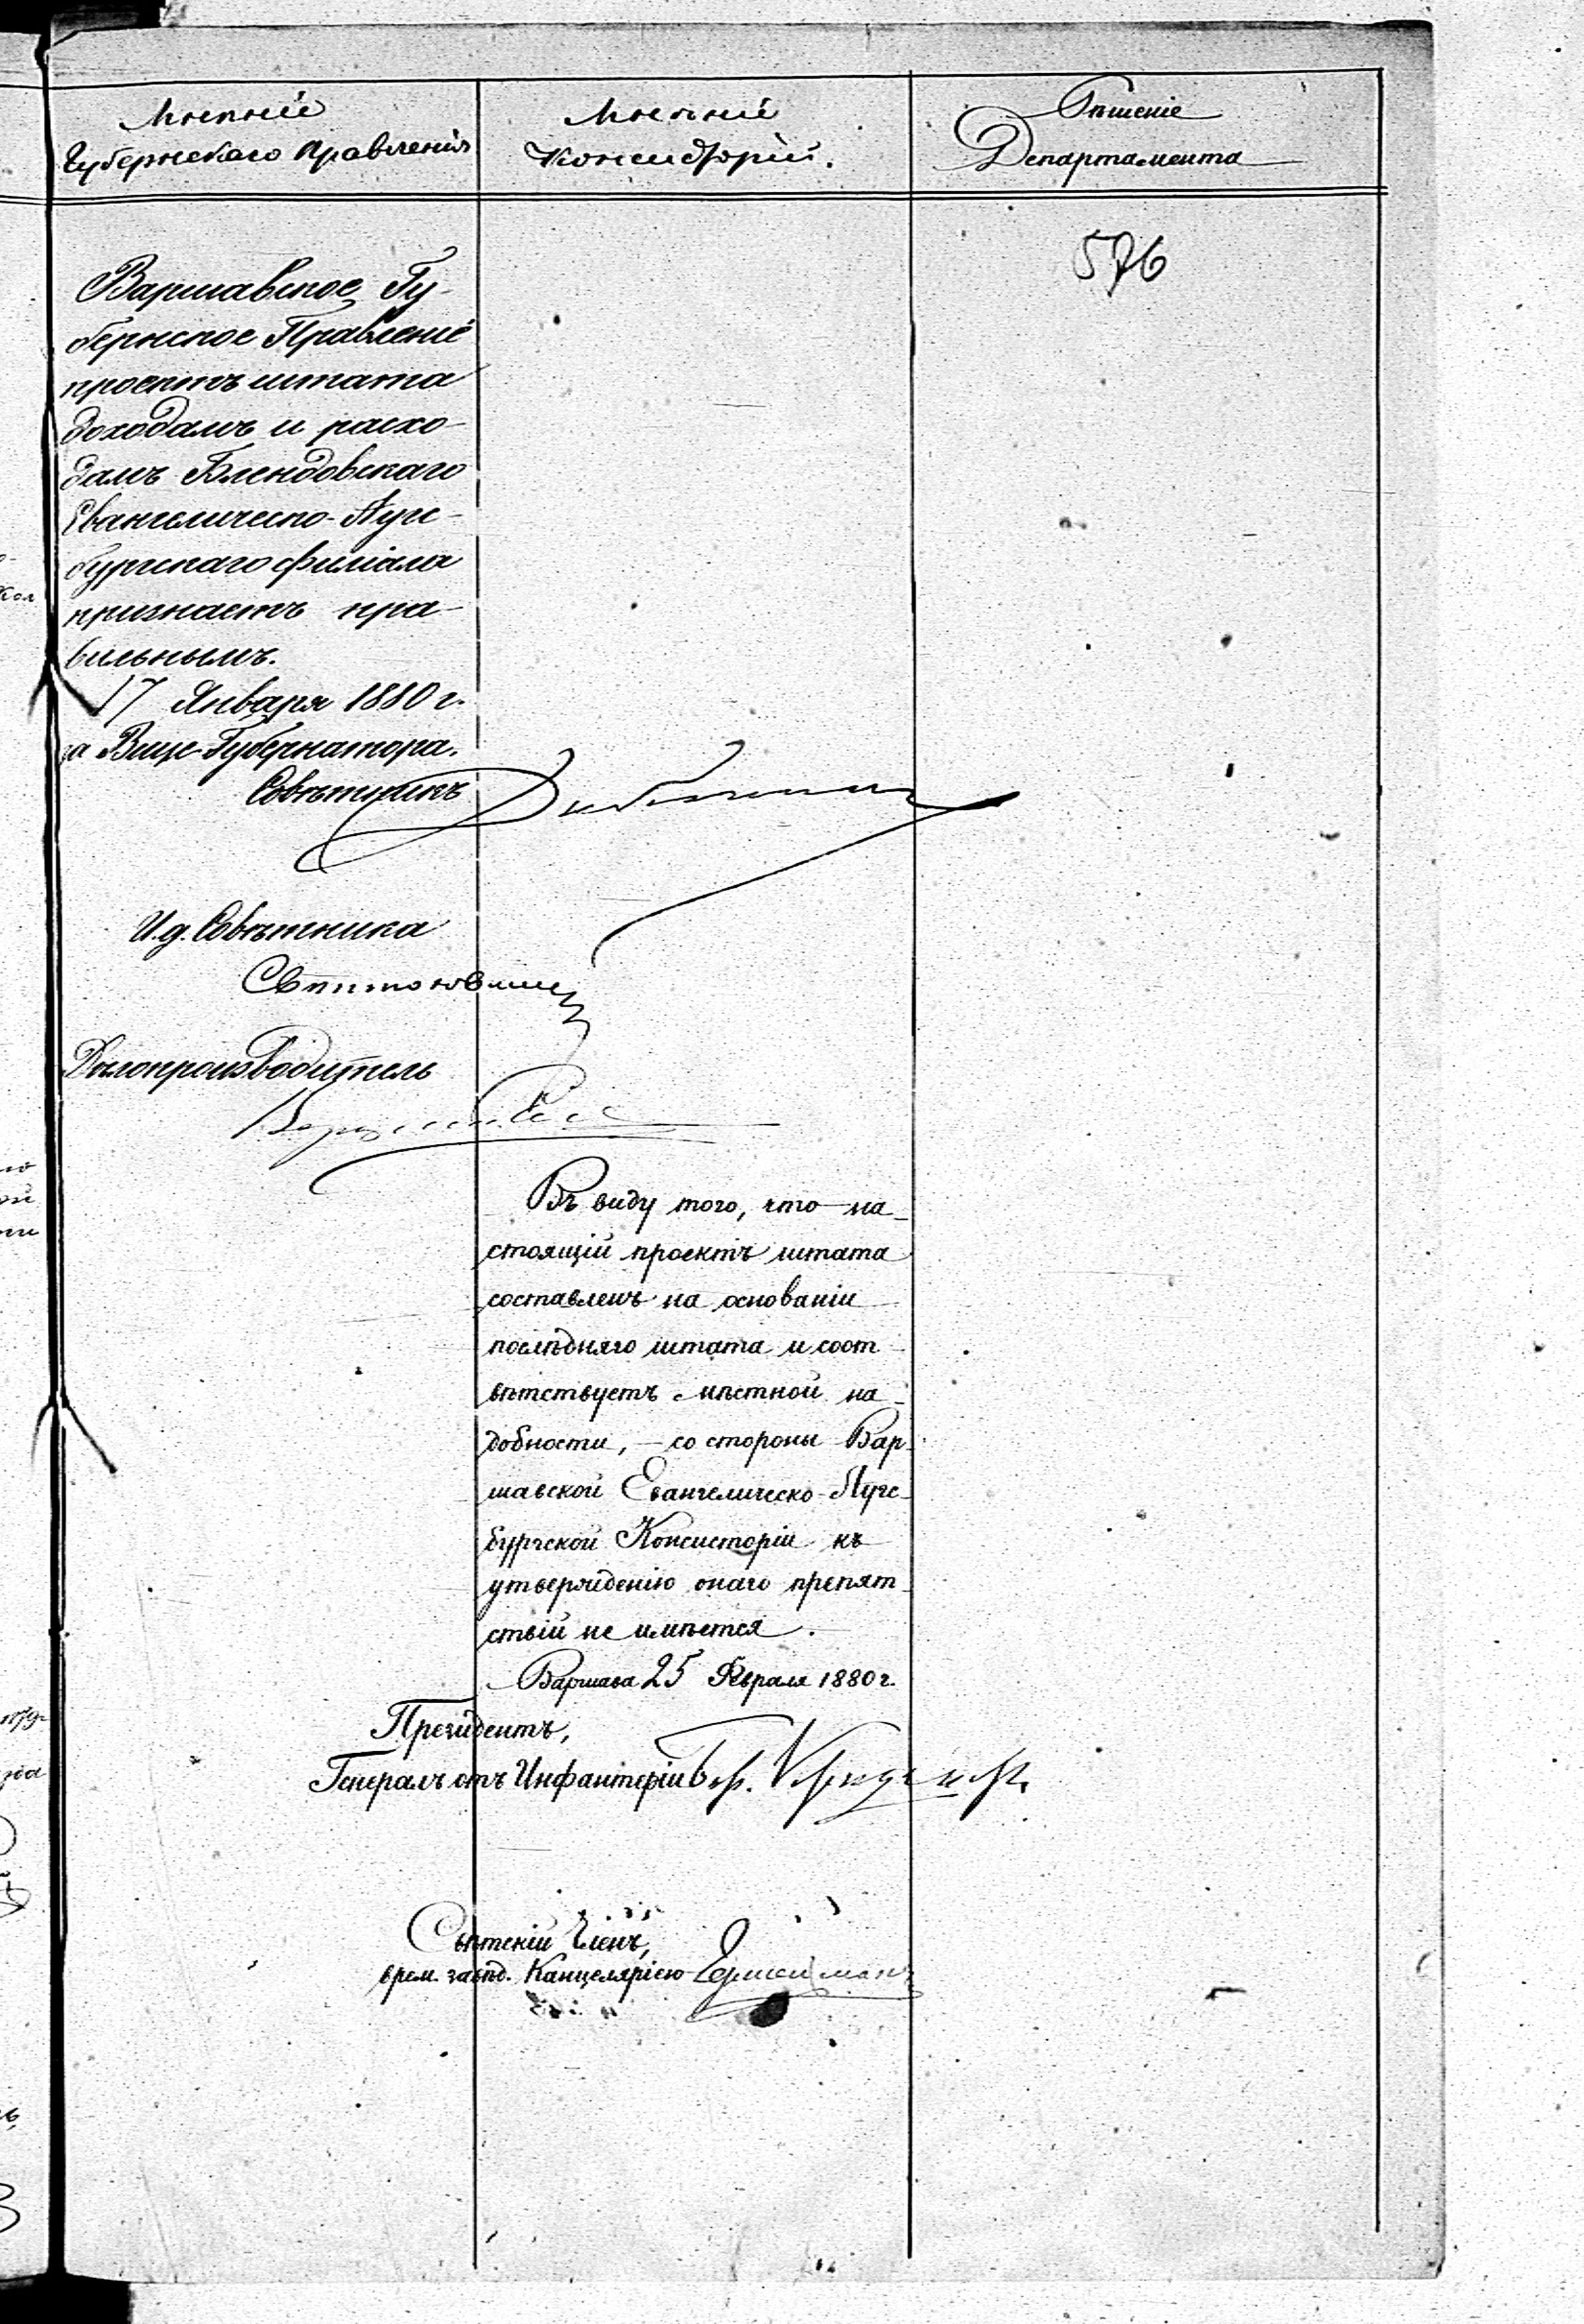 Мнѣніе
Губернскаго Правленія
Мнѣніе
Консисторіи.
Рѣшеніе
Департамента
576
Варшавское Гу-
бернское Правленіе
проектъ штата
доходамъ и расхо-
дамъ Блендовскаго
Евангелическо-Аугс-
бургскаго филіала
признаетъ пра-
вильнымъ.
17 Января 1880 г.
за Вице-Губернатора.
Совѣтникъ
И.д. Совѣтника
Дѣлопроизводитель
Въ виду того, что на-
стоящій проектъ штата
составленъ на основаніи
послѣдняго штата и соот-
вѣтствуетъ мѣстной на-
добности, — со стороны Вар-
шавской Евангелическо-Аугс-
бургской Консисторіи къ
утвержденію онаго препят-
ствій не имѣется.
Варшава 25 Февраля 1880 г.
Президентъ,
Генералъ отъ Инфантеріи
Свѣтскій Членъ,
врем. завѣд. Канцеляріею